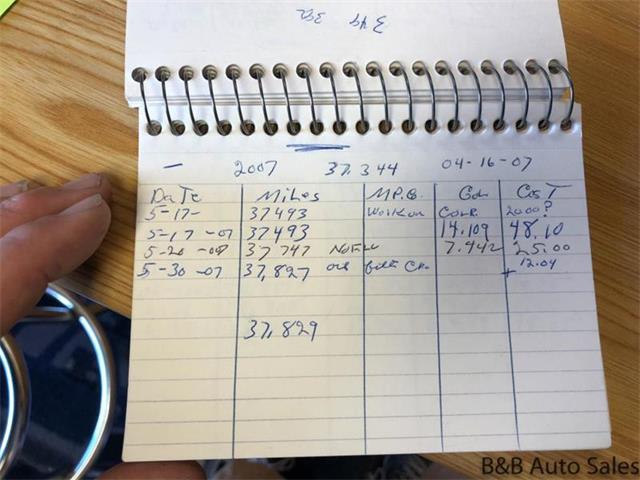 349 392
— 2007 37,344 04-16-07
Date Miles M.P.G. Gal Cost
5-17- 37493 Work on 2000?
5-17-07 37493 14.109 48.10
5-20-07 37747 7.442 25.00
5-30-07 37,827 12.04
37,829
B&B Auto Sales